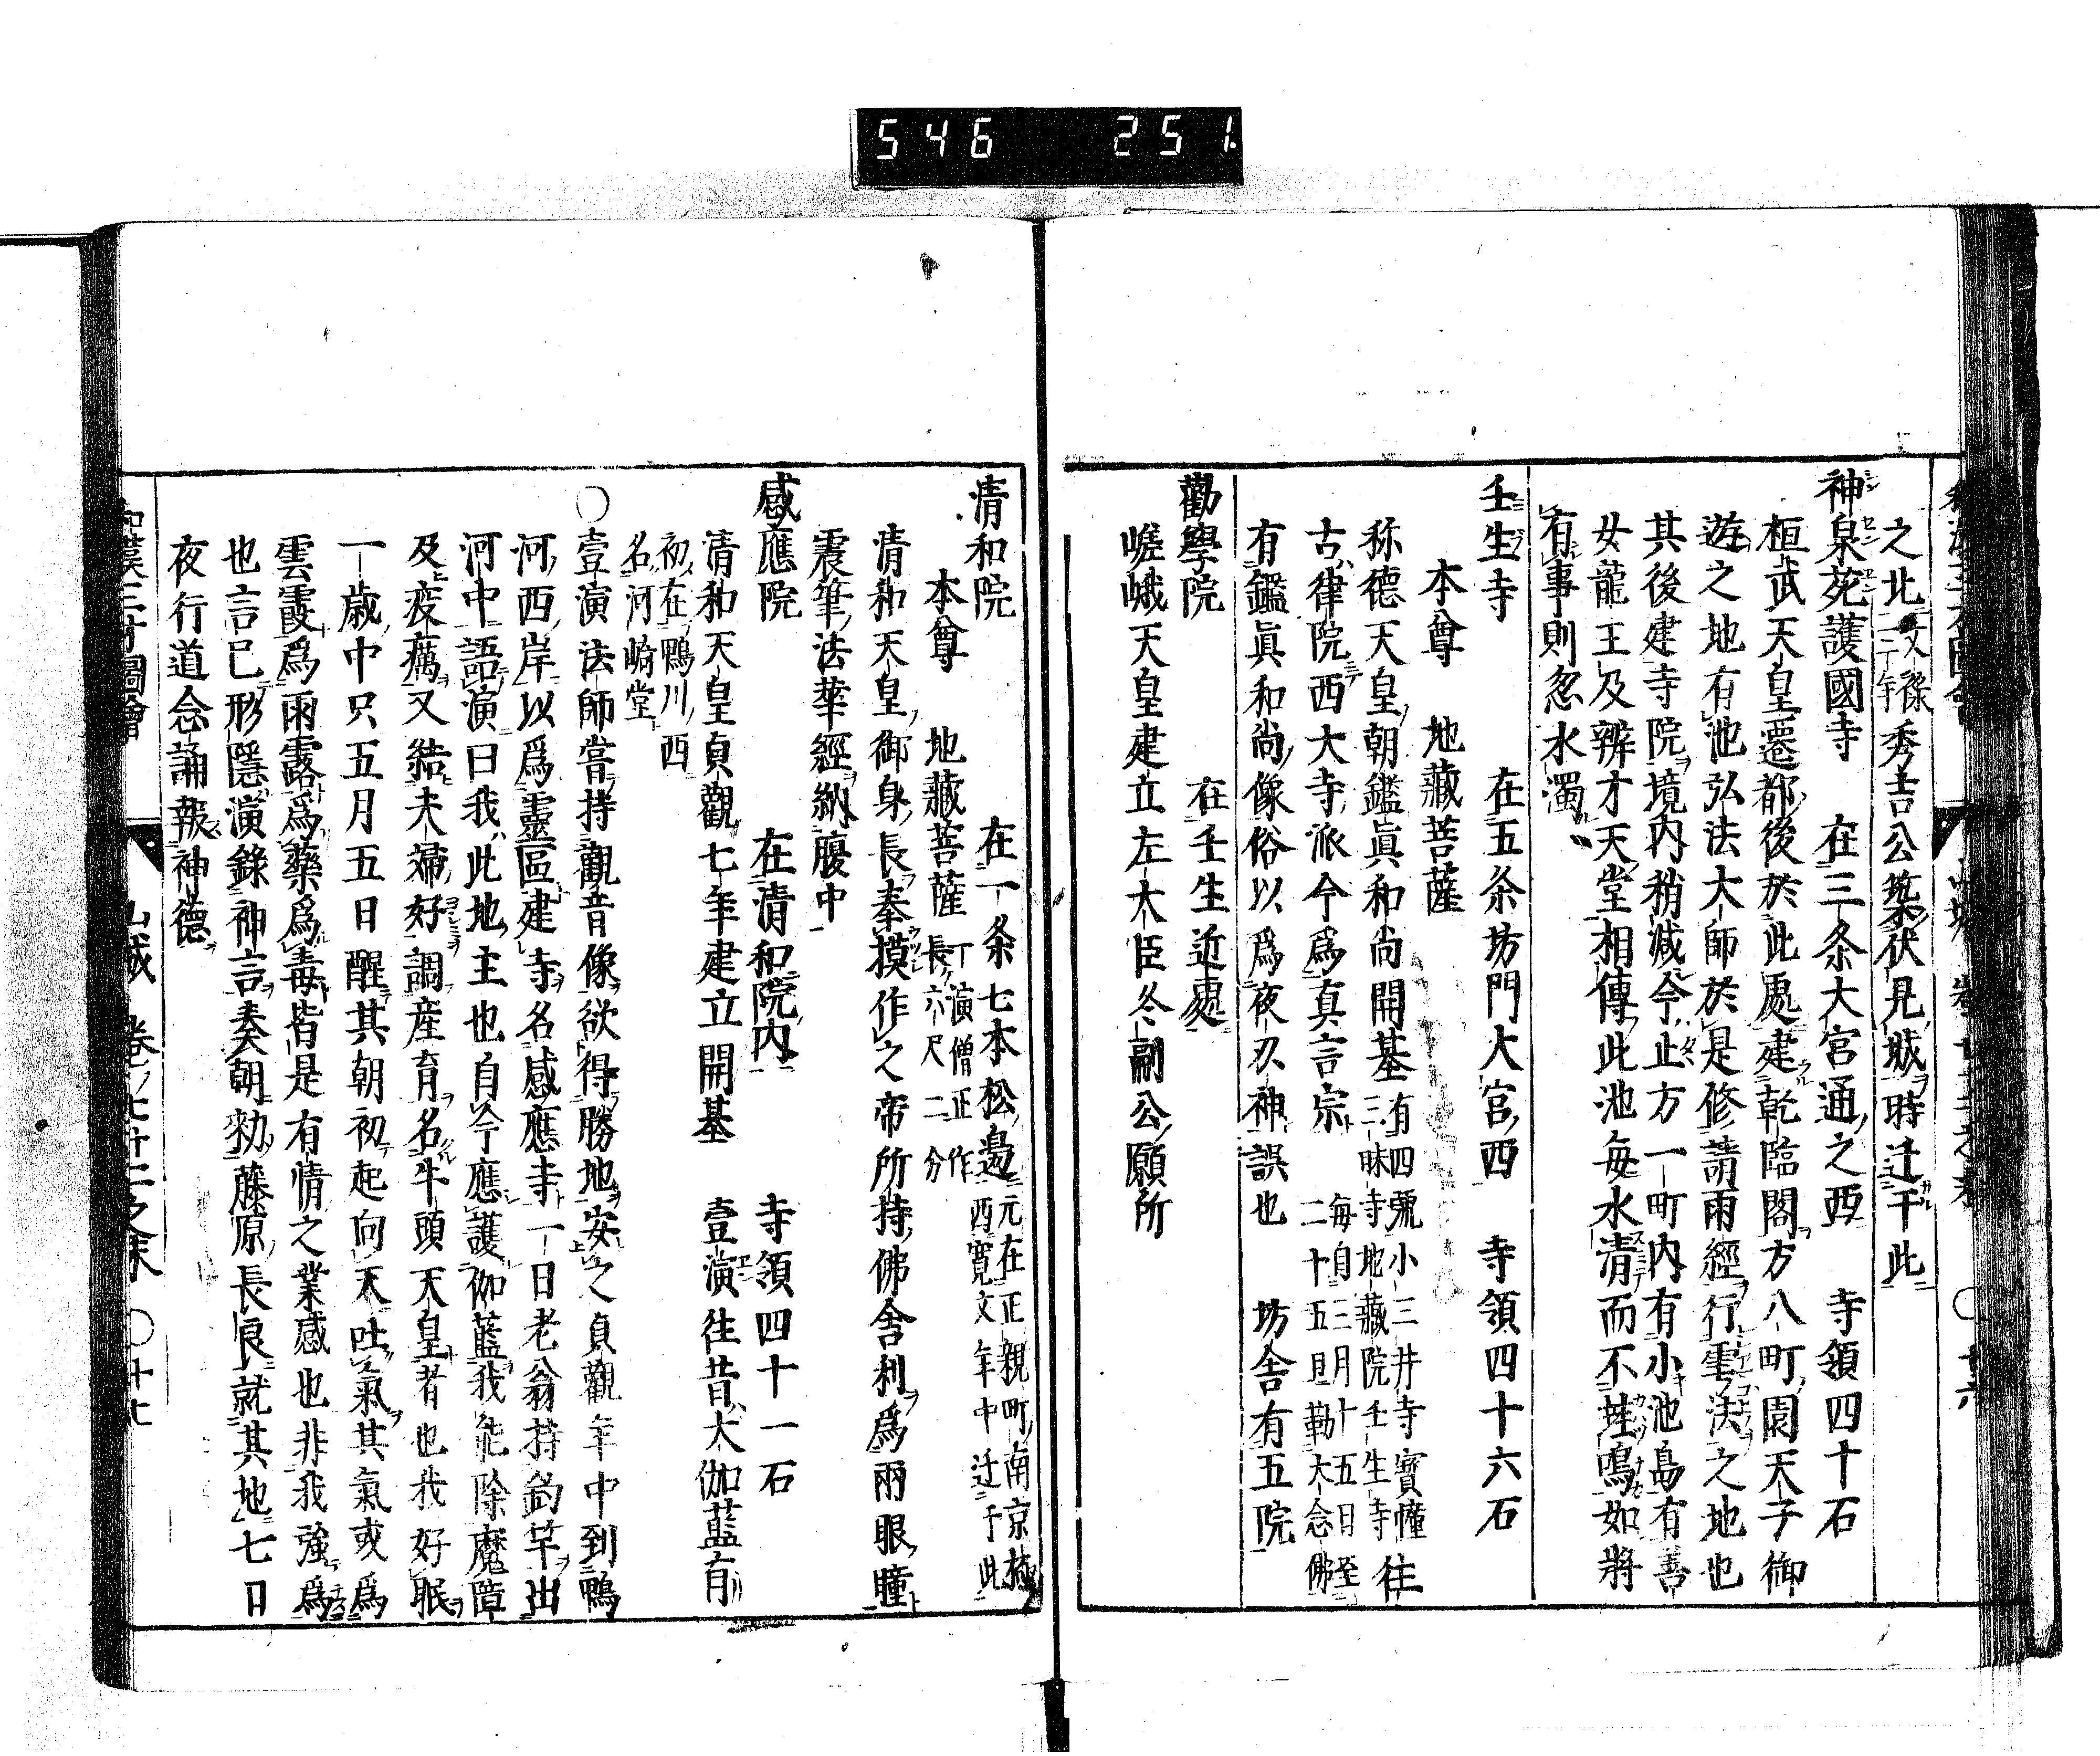 546 251
之北文祿二年秀吉公築伏見城時迁于此
神泉苑護國寺 在三条大宮通之西 寺領四十石
桓武天皇遷都後於此處建乾臨閣方八町園天子御
遊之地有池弘法大師於是修請雨經行雩法之地也
其後建寺院境内稍減今止方一町内有小池島有善
女龍王及辨才天堂相傳此池毎水清而不蛙鳴如將
有事則忽水濁
壬生寺 在五条坊門大宮西 寺領四十六石
本尊 地藏菩薩
称德天皇朝鑑眞和尚開基有四號小三井寺寶幢
三昧寺地藏院壬生寺往
古律院西大寺派今爲真言宗毎自三月十五日至
二十五日勤大念佛
有鑑眞和尚像俗以爲夜刄神誤也 坊舎有五院
勸學院 在壬生近處
嵯峨天皇建立左大臣冬嗣公願所
清和院 在一条七本松邊元在正親町南京極
西寛文年中迁于此
本尊 地藏菩薩丁演僧正作
長六尺二分
清和天皇御身長奉摸作之帝所持佛舎利爲兩眼瞳
震筆法華經納腹中
感應院 在清和院内 寺領四十一石
清和天皇貞觀七年建立開基 壹演往昔大伽藍有
初在鴨川西
名河崎堂
〇壹演法師嘗持觀音像欲得勝地安之貞觀年中到鴨
河西岸以爲靈區建寺名感應寺一日老翁持釣竿出
河中語演曰我此地主也自今應護伽藍我能除魔障
及疫癘又結夫婦好調産育名牛頭天皇者也我好眠
一歳中只五月五日醒其朝初起向天吐氣其氣或爲
雲霞爲雨露爲藥爲毒皆是有情之業感也非我強爲
也言已形隱演錄神言奏朝勅藤原長良就其地七日
夜行道念誦報神德
和漢三才圖會 山城 卷七十二之末 〇十七